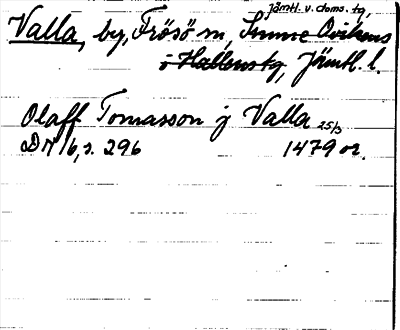 jämtl. v. doms. tg,
Valla, by, Frösö sn, Sunne Ovikens
o Hallens tg, Jämtl. l.
Olaff Tomasson j Valla 25/3
DN 16, s. 296 1479 or.